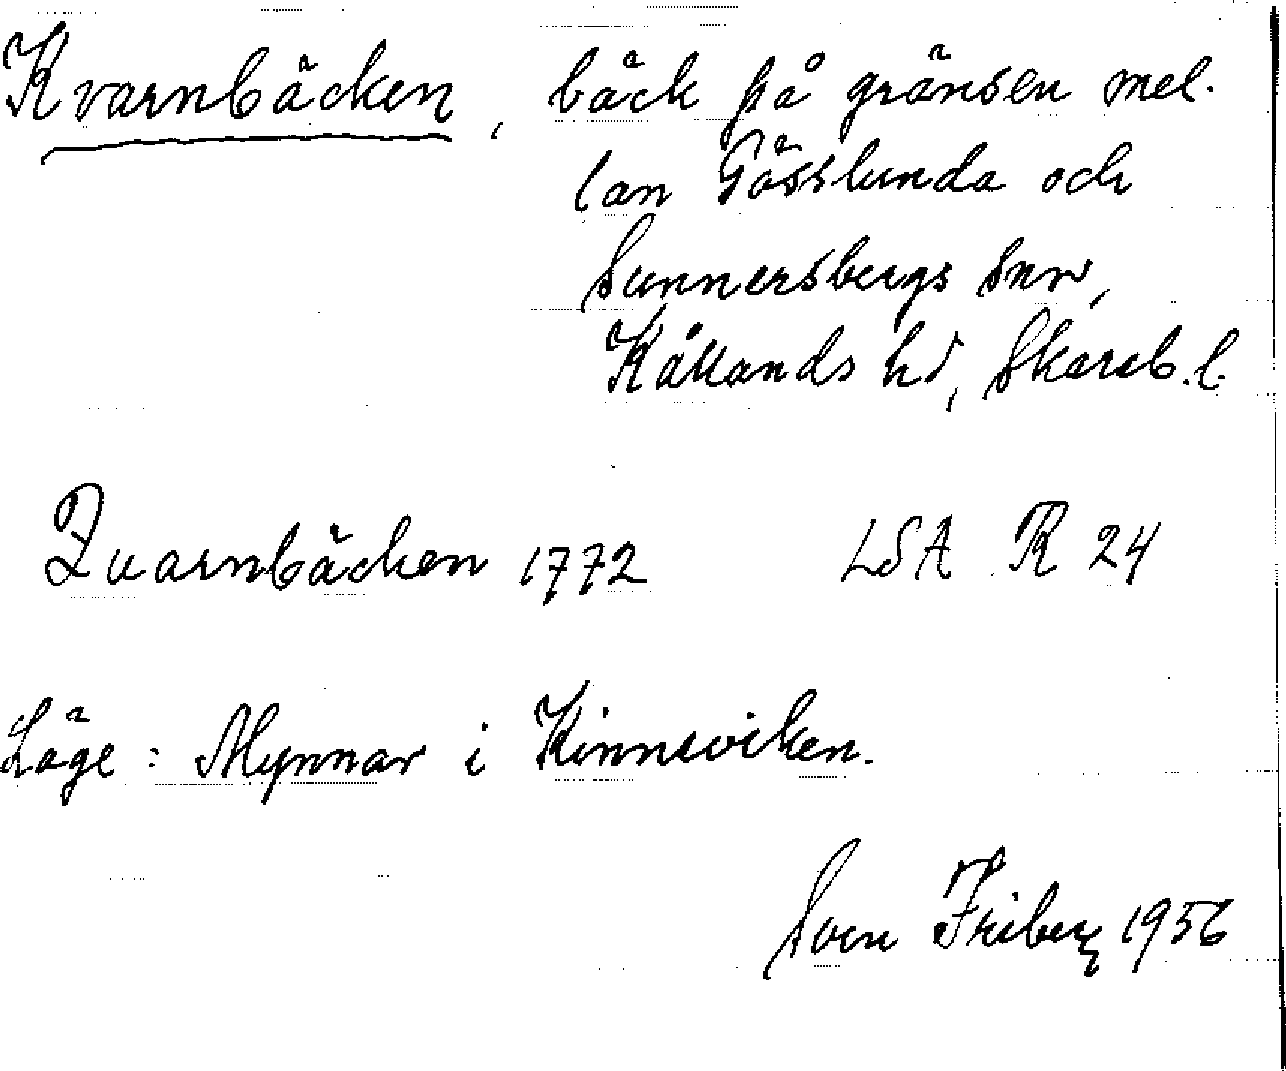 Kvarnbäcken, bäck på gränsen mel-
lan Gösslunda och
Sunnersbergs snr,
Kållands hd, Skarab. l.
Quarnbäcken 1772 LSA R 24
Läge: Mynnar i Kinneviken.
Sven Friberg 1956